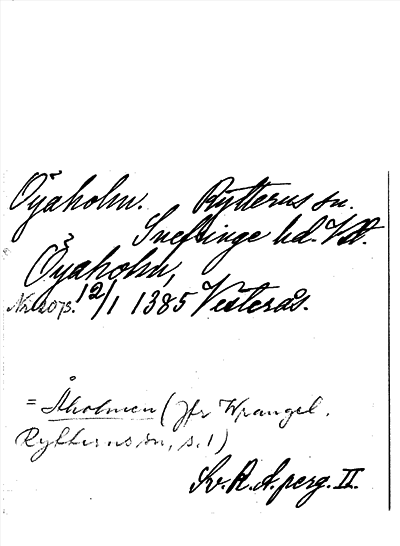 Öyaholm. Rytterns sn.
Snefringe hd. Vstm.
Öyaholm,
Nr 2073. 12/1 1385 Vesterås.
= Åholmen (Jfr Wrangel,
Rytternssn, s. 1)
Sv. R. A. perg. II.